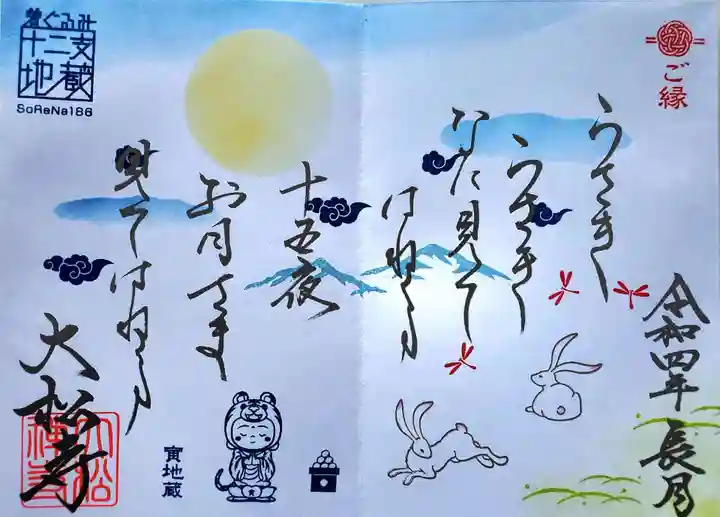 ご縁
令和四年 長月
うさぎ
うさぎ
なに見て
はねる
十五夜
お月さま
見てはねる
大松寺
大松禅寺
寅地蔵
着ぐるみ
十二支
地蔵
SoReNa186